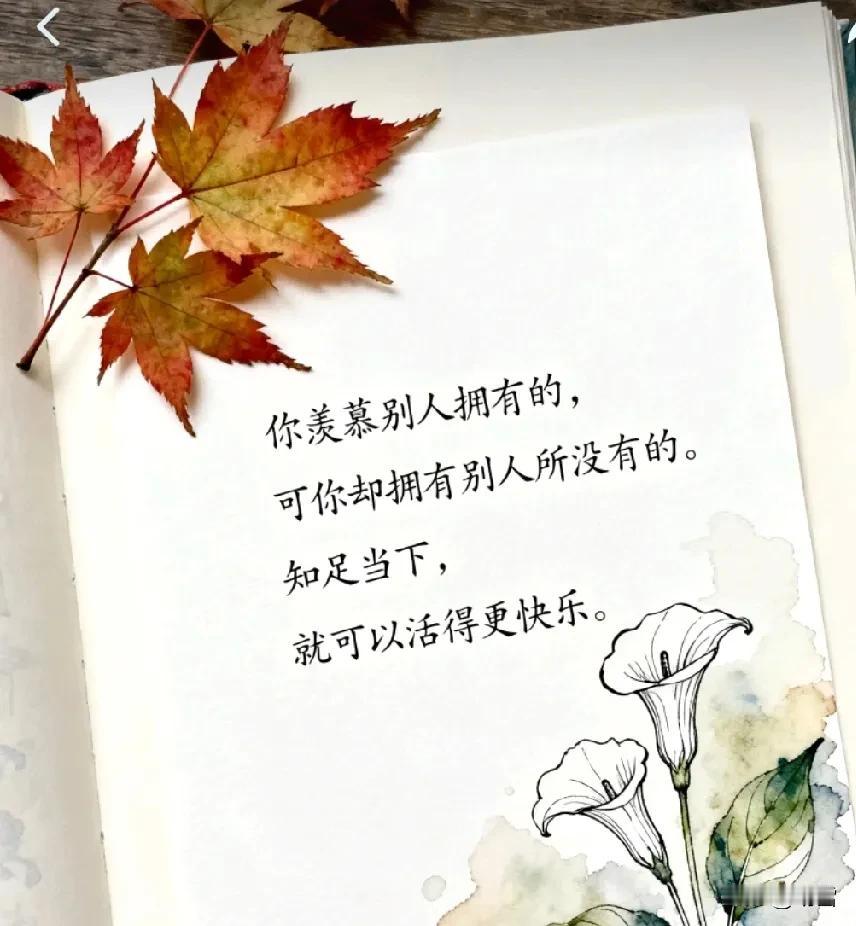 你羡慕别人拥有的，
可你却拥有别人所没有的。
知足当下，
就可以活得更快乐。